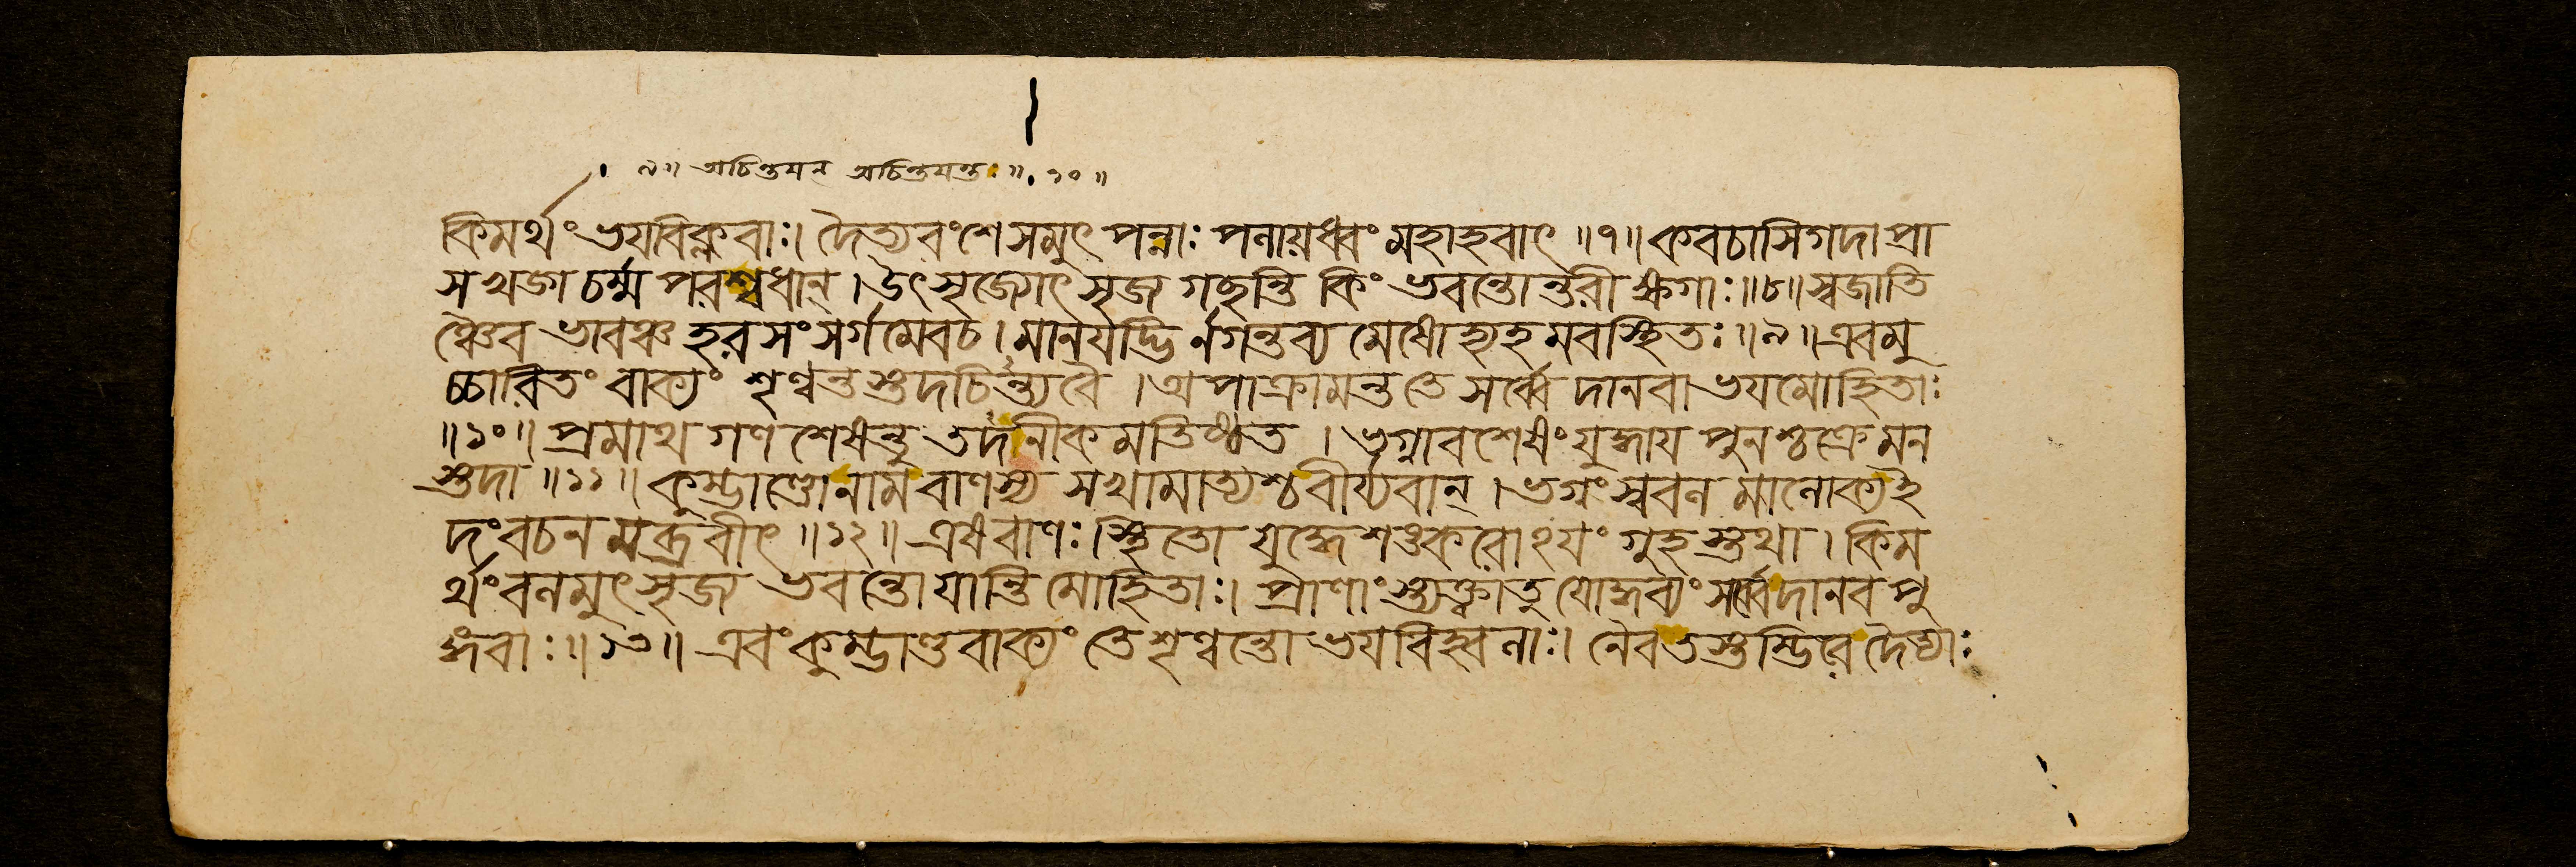 ৯॥ অচিন্তমন অচিন্তমন্তঃ॥ ১০॥
কিমর্থং ভয়বিক্লবাঃ। দৈত্যবংশেসমুৎপন্নাঃ পলায়ধ্বং মহাহবাৎ ॥৭॥ কবচাসিগদাপ্রা
সখড়্গচর্ম্ম পরশ্বধান্। উৎসৃজ্যোৎসৃজ গচ্ছন্তি কিং ভবন্তোন্তরীক্ষগাঃ॥৮॥ স্বজাতি
ঞ্চৈব ভাবঞ্চ হরসংসর্গমেবচ। মানয়দ্ভির্নগন্তব্য মেষোহ্যহমবস্থিতঃ॥৯॥ এবমু
চ্চারিতং বাক্যং শৃণ্বন্তস্তদচিন্ত্যবৈ। অপাক্রামন্ততে সর্ব্বে দানবা ভয়মোহিতাঃ
॥১০॥ প্রমাথ গণ শেষন্তু তদনীকমতিষ্ঠত। ভগ্নাবশেষং যুদ্ধায় পুনশ্চক্রে মন
স্তদা ॥১১॥ কুম্ভাণ্ডোনাম বাণস্য সখামাত্যশ্চবীর্য্যবান্। ভগ্নং স্ববল মালোক্যই
দংবচনমব্রবীৎ ॥১২॥ এষবাণঃ স্থিতো যুদ্ধেশঙ্করোঽয়ং গুহস্তথা। কিম
র্থং বলমুৎসৃজ ভবন্তো যান্তি মোহিতাঃ। প্রাণাংস্ত্যক্ত্বাতু যোদ্ধব্যং সর্ব্বেদানবপু
ঙ্গবাঃ॥১৩॥ এবং কুম্ভাণ্ডবাক্যং তেশৃণ্বন্তো ভয়বিহ্বলাঃ। নৈবতস্তুম্ভিরে দৈত্যাঃ